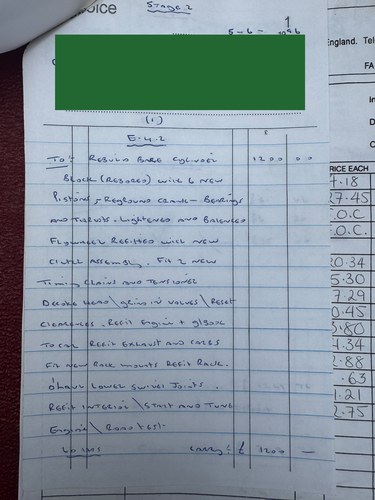 oice
Stage 2
1
5-6- 1996
(1)
£
E-4.2
To: Rebuild Bare Cylinder 1200 00
Block (Rebored) with 6 new
Pistons, Reground crank - Bearings
and Thrusts. Lightened and Balanced
Flywheel Refitted with new
Clutch Assembly. Fit 2 new
Timing Chains and Tensioner
Decoke Head \ grind in valves \ Reset
Clearances. Refit Engine + g/Box
To car Refit Exhaust and carbs
Fit new Rack mounts Refit Rack.
O'haul Lower Swivel Joints.
Refit Interior \ Start and Tune
Engine \ Road test.
Labour Carry: £ 1200 —
England. Tel
FA
In
D
C
RICE EACH
7.18
27.45
F.O.C.
O.C.
20.34
5.30
7.29
0.45
3.80
4.34
2.88
.63
1.21
2.75